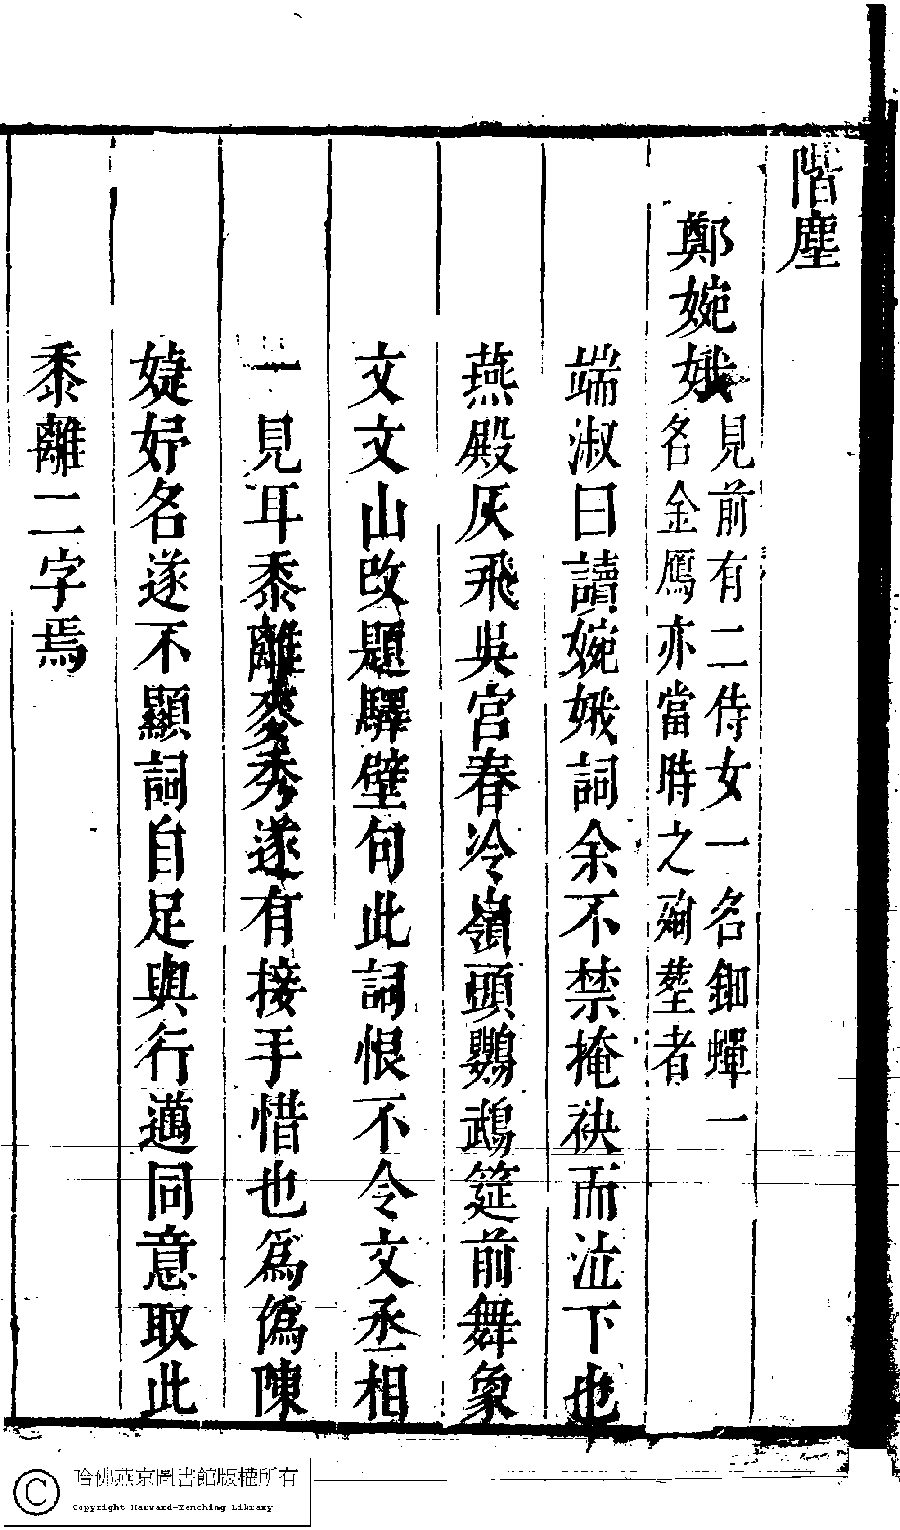 階塵
鄭婉娥見前有二侍女一名鈿蟬一
名金鴈亦當時之殉塟者
端淑曰讀婉娥詞余不禁掩袂而泣下也
燕殿灰飛吳宮春冷嶺頭鸚鵡筵前舞象
文文山改題驛壁句此詞恨不令文丞相
一見耳黍離麥秀遂有接手惜也爲僞陳
婕妤名遂不顯詞自足與行邁同意取此
黍離二字焉
哈佛燕京圖書館版權所有
Copyright Harvard-Yenching Library